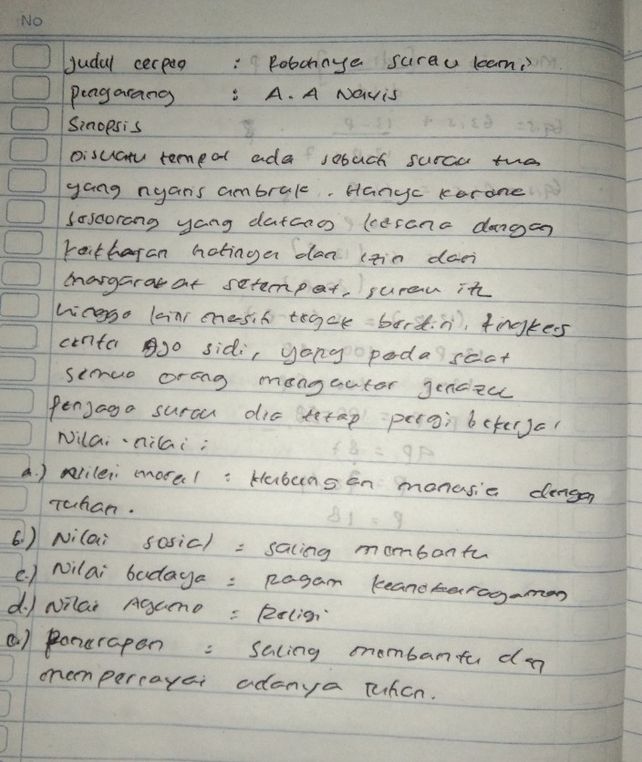 No
Judul cerpen : Robohnya surau kami
Pengarang : A. A Navis
Sinopsis
Disuatu tempat ada sebuah surau tua
yang nyaris ambruk. Hanya karena
seseorang yang datang kesana dengan
keikhasan hatinya dan izin dari
masyarakat setempat, surau itu
hingga kini masih tegak berdiri. Singkat
cerita Ajo sidi, yang pada saat
semua orang mengantar jenazu
penjaga surau dia tetap pergi bekerja.
Nilai-nilai :
a.) Nilai moral : Hubungan manusia dengan
Tuhan.
b.) Nilai sosial = saling membantu
c.) Nilai budaya = Ragam keanekaragaman
d.) Nilai Agama = Religi
e.) Penerapan = Saling membantu dan
mempercayai adanya Tuhan.